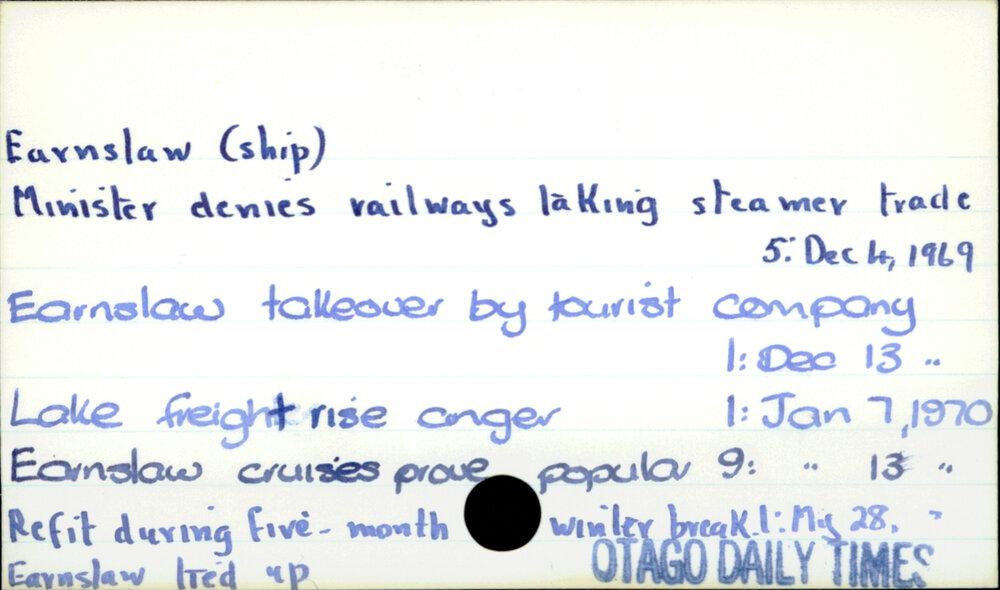 Earnslaw (ship)
Minister denies railways taking steamer trade
5: Dec 4, 1969
Earnslaw takeover by tourist company
1: Dec 13 "
Lake freight rise anger 1: Jan 7, 1970
Earnslaw cruises prove popular 9: " 13 "
Refit during five-month winter break 1: My 28, "
Earnslaw tied up
OTAGO DAILY TIMES